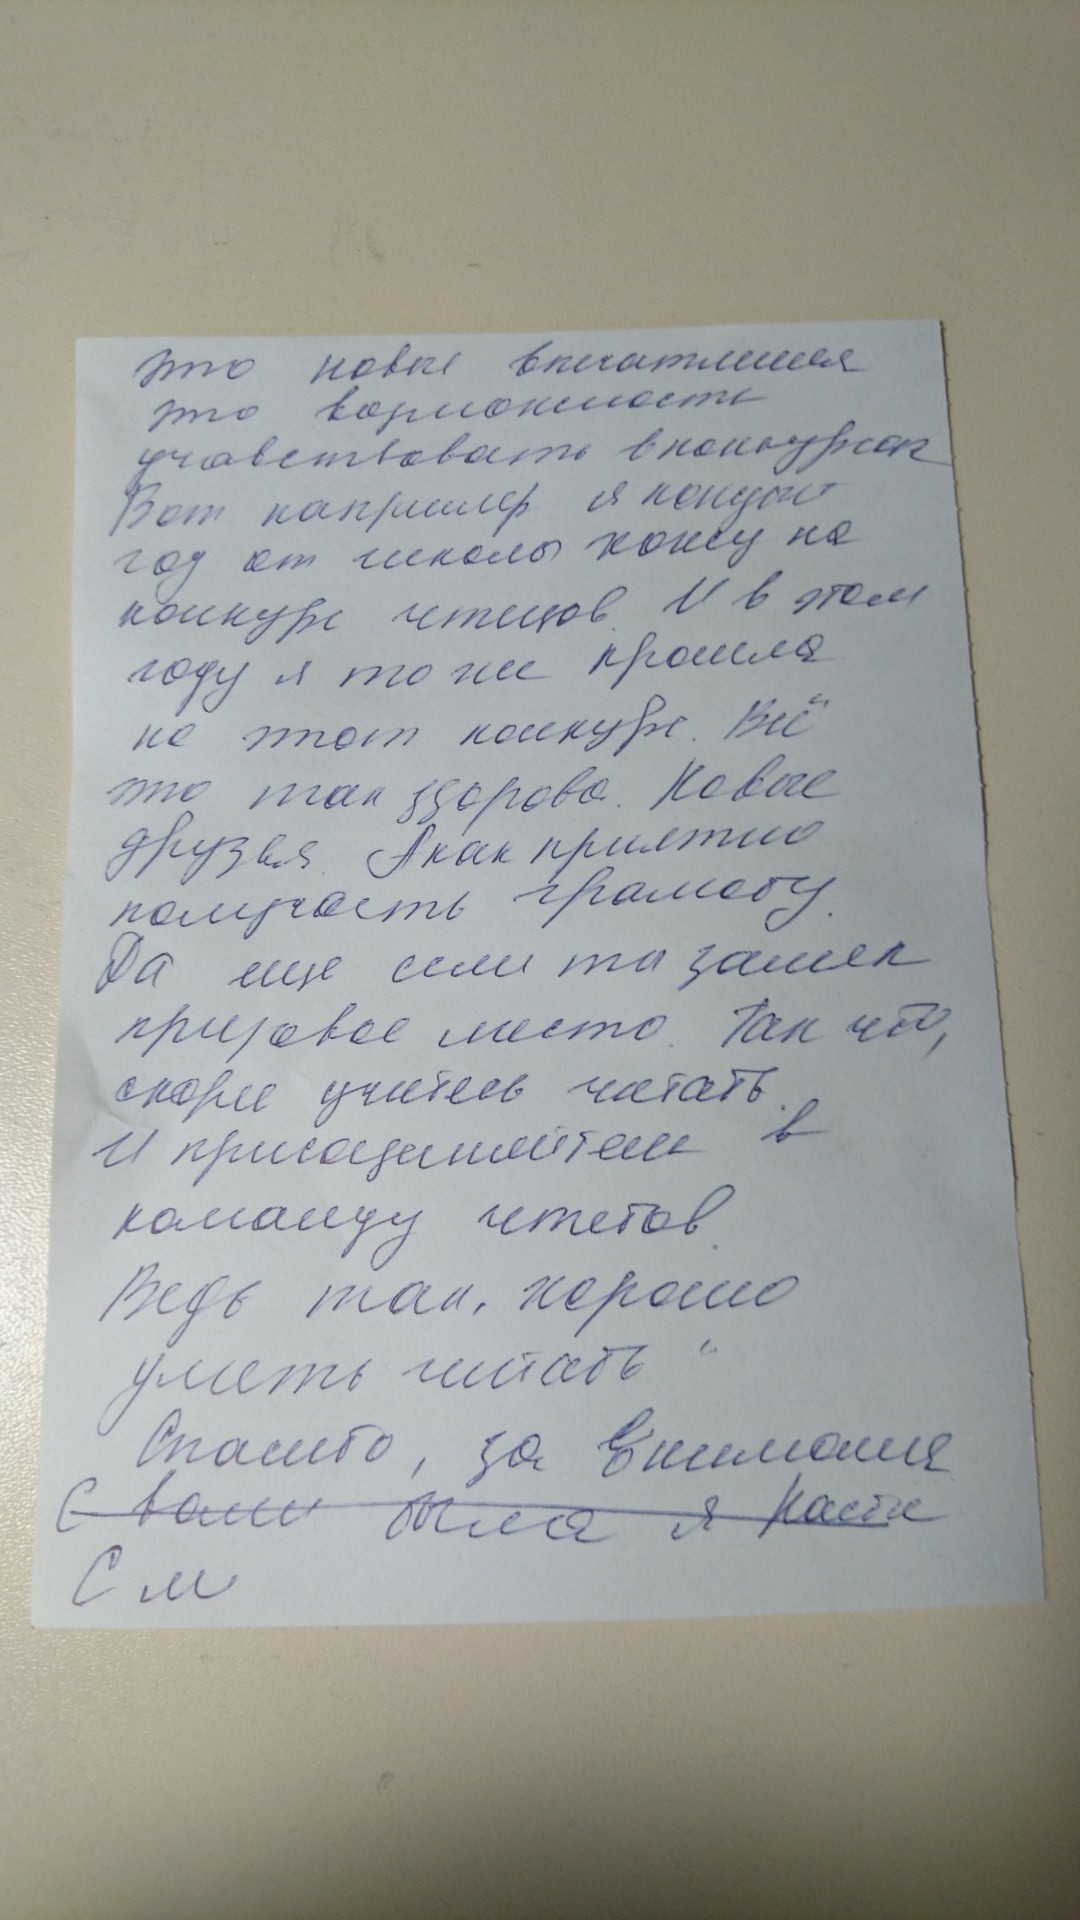 это новые впечатления
это возможность
учавствовать в конкурсах
Вот например я каждый
год от школы хожу на
конкурс чтецов. И в этом
году я то же прошла
на этот конкурс. Всё
это так здорово. Новые
друзья. А как приятно
получать грамоту.
Да еще если ты занял
призовое место. Так что,
скорее учитесь читать.
И присоединяйтесь в
команду чтетов.
Ведь так, хорошо
уметь читать"
Спасибо, за внимания
С вами была я Настя
С м